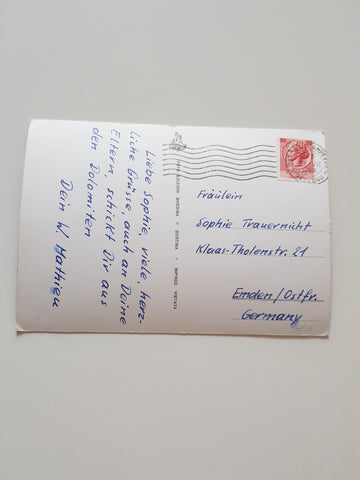 Liebe Sophie, viele, herz-
liche Grüsse, auch an Deine
Eltern, schickt Dir aus
den Dolomiten
Dein W. Mathieu
Fräulein
Sophie Trauernicht
Klaas-Tholenstr. 21
Emden/Ostfr.
Germany